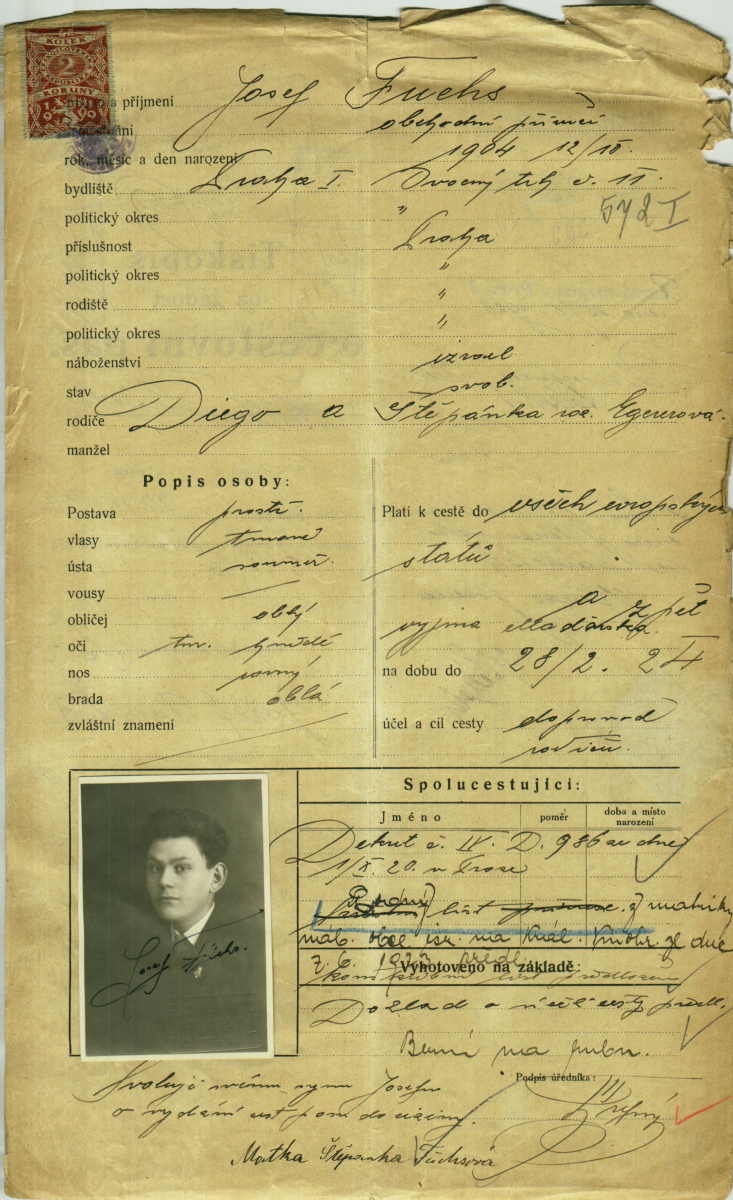 KOLEK
2
KORUNY
1919
a příjmení Josef Fuchs
obchodní příručí
rok, měsíc a den narození 1904 12/10.
bydliště Praha I. Ovocný trh č. 11.
politický okres "
572 I
příslušnost Praha
politický okres "
rodiště "
politický okres "
náboženství izrael
stav svob.
rodiče Diego a Štěpánka roz. Egererová.
manžel
Popis osoby:
Postava prostř.
vlasy tmavé
ústa souměr.
vousy —
obličej oblý
oči tm. hnědé
nos rovný
brada oblá
zvláštní znamení
Platí k cestě do všech evropských
států
a zpět
vyjma Maďarska.
na dobu do 28/2. 24
účel a cíl cesty doprovod
rodičů.
Spolucestující:
Jméno poměr doba a místo narození
Dekret č. IV. D. 986 ze dne
1/X. 20. v Praze
Rodný list z matriky
náb. obce isr. na Král. Vinohr. ze dne
7. 6. 1923 předl.
Vyhotoveno na základě:
Doklad o účelu cesty předl.
Podpis úředníka:
Josef Fuchs.
Svoluji svému synu Josefu
o vydání cest. pasu do ciziny.
Matka Štěpánka Fuchsová